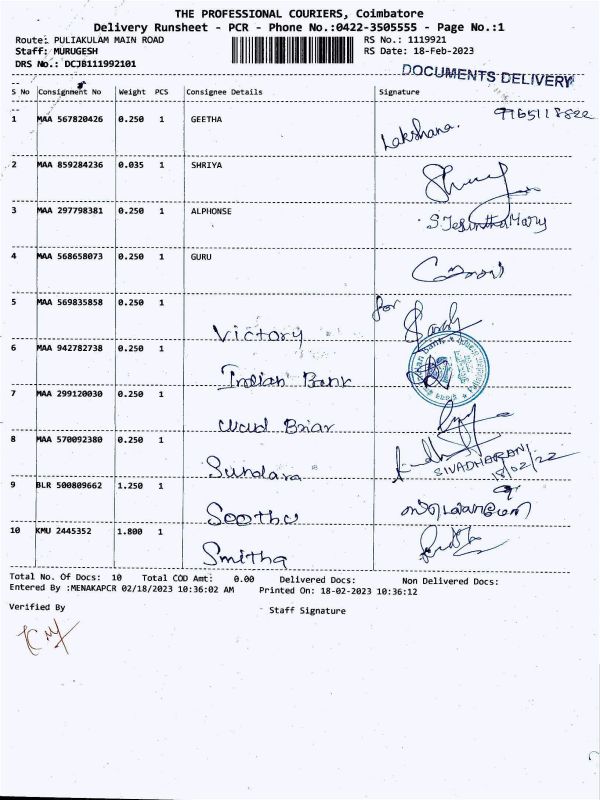 THE PROFESSIONAL COURIERS, Coimbatore
Delivery Runsheet - PCR - Phone No.:0422-3505555 - Page No.:1
Route: PULIAKULAM MAIN ROAD RS No.: 1119921
Staff: MURUGESH RS Date: 18-Feb-2023
DRS No.: DCJB111992101
DOCUMENTS DELIVERY
S No Consignment No Weight PCS Consignee Details Signature
1 MAA 567820426 0.250 1 GEETHA Lakshana. 9965118822
2 MAA 859284236 0.035 1 SHRIYA
3 MAA 297798381 0.250 1 ALPHONSE S Jesintha Mary
4 MAA 568658073 0.250 1 GURU
5 MAA 569835858 0.250 1 Victory for
6 MAA 942782738 0.250 1 Indian Bank
7 MAA 299120030 0.250 1 Briar
8 MAA 570092380 0.250 1 Sundara SIVADHARANI 18/02/22
9 BLR 500809662 1.250 1
10 KMU 2445352 1.800 1 Smitha
Total No. Of Docs: 10 Total COD Amt: 0.00 Delivered Docs: Non Delivered Docs:
Entered By :MENAKAPCR 02/18/2023 10:36:02 AM Printed On: 18-02-2023 10:36:12
Verified By Staff Signature